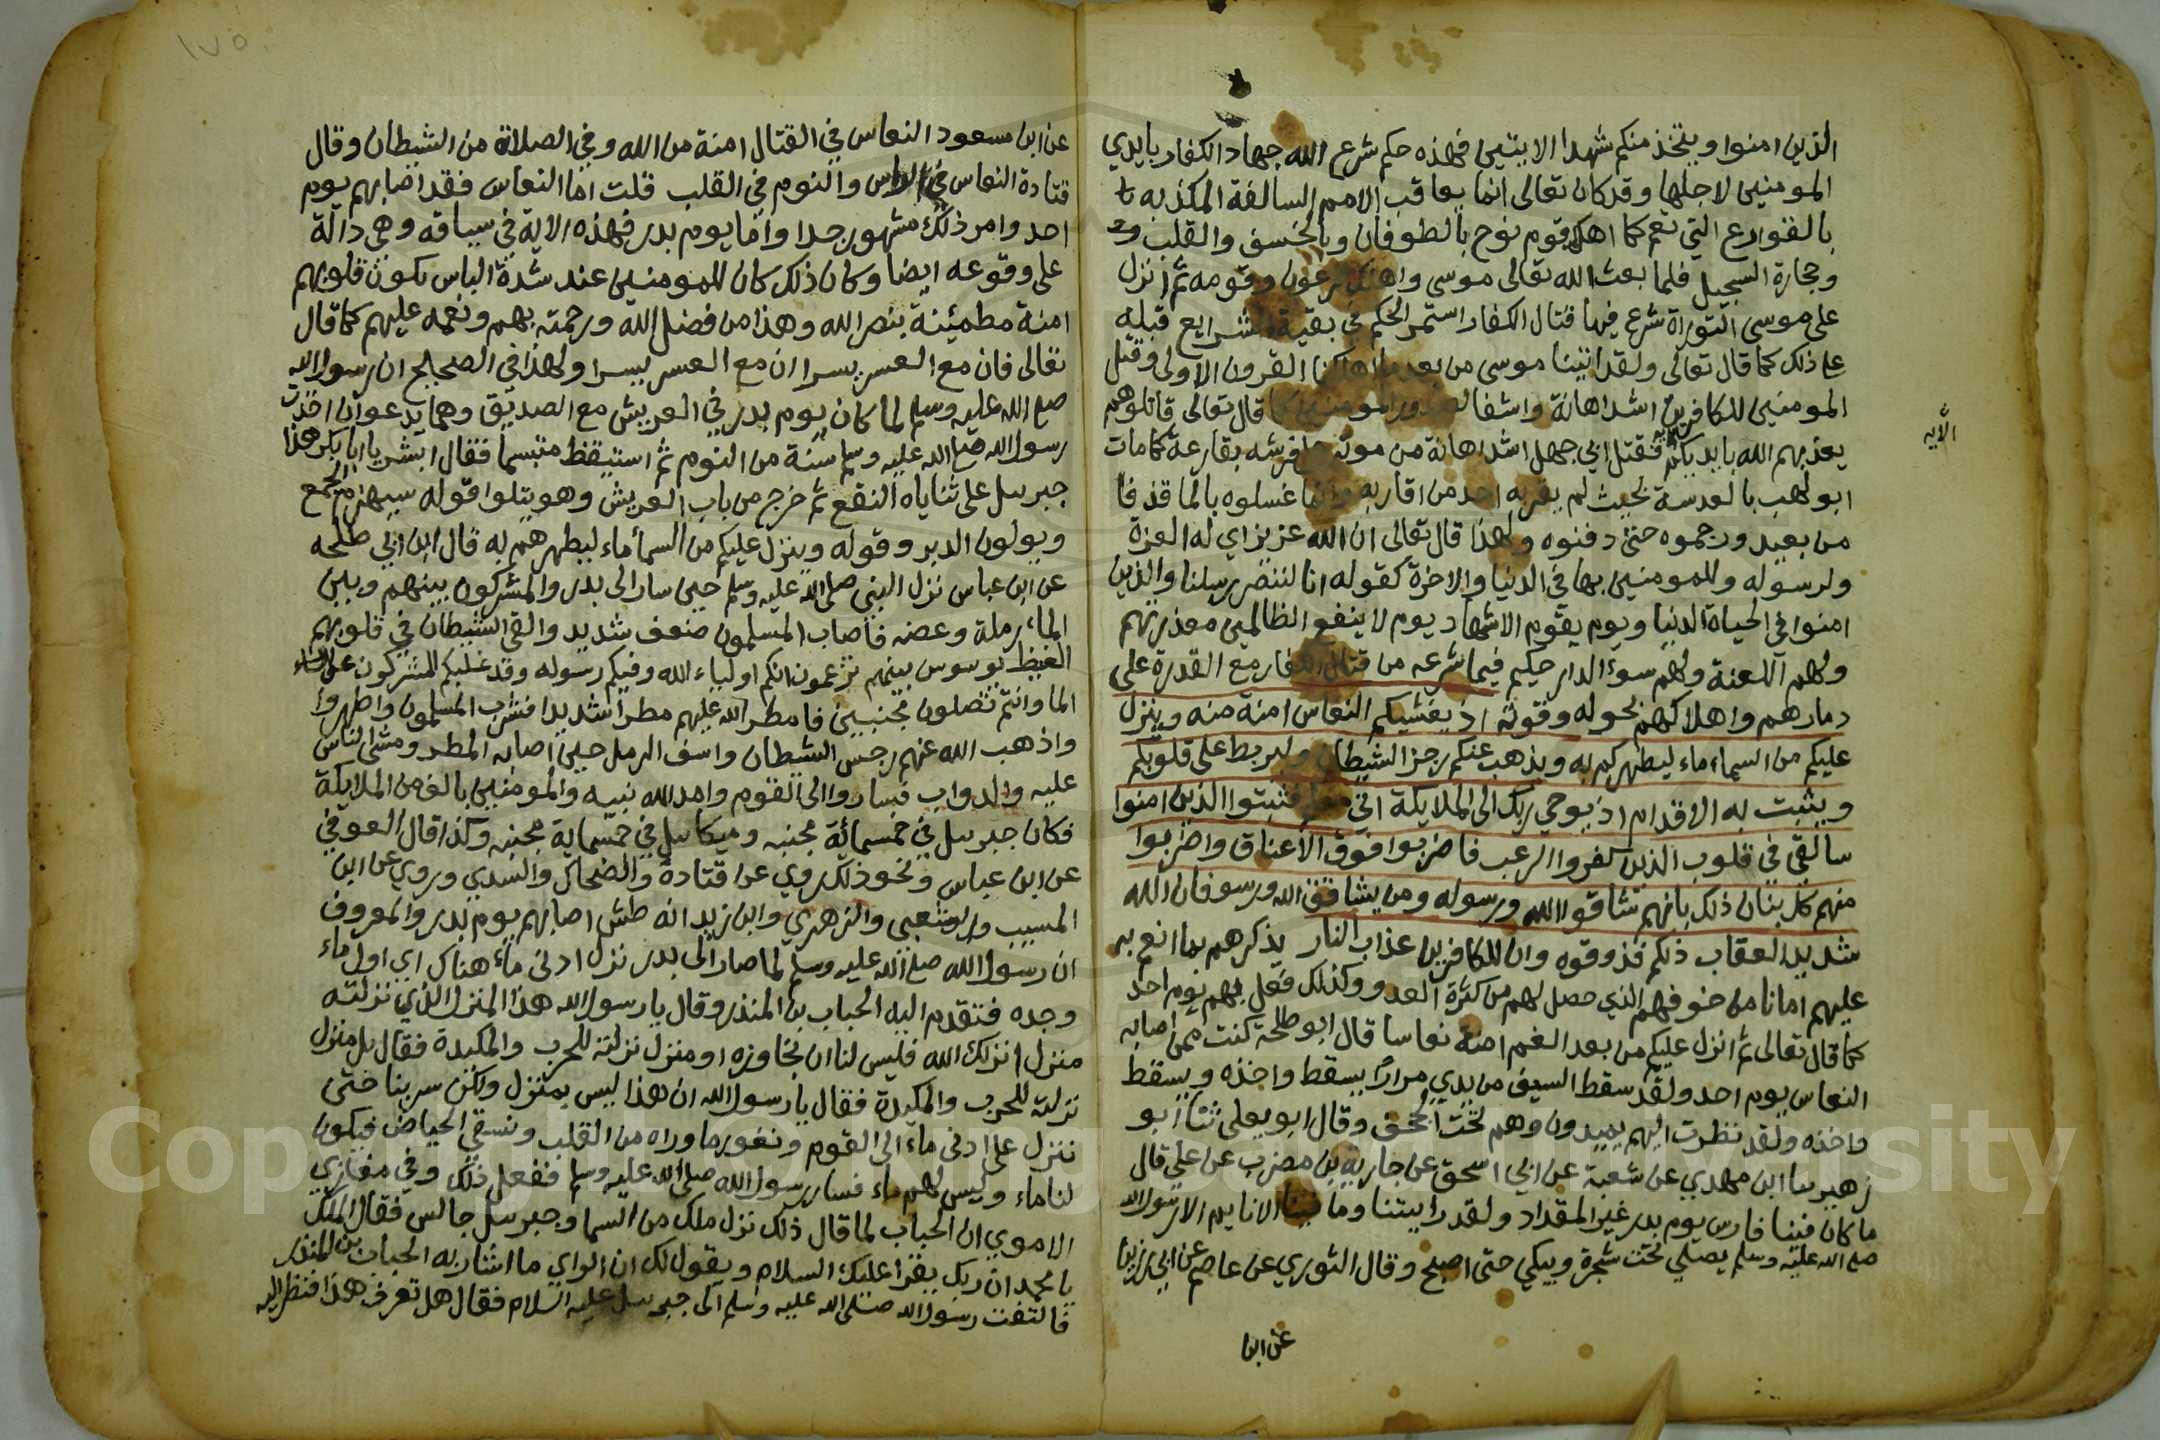 الذين امنوا ويتخذ منكم شهدا الايتين فهذه حكم شرع الله جهاد الكفار بايدي
المومنين لاجلها وقد كان تعالى انما يعاقب الامم السالفة المكذبه
بالقوارع التي تعم كما اهلك قوم نوح بالطوفان وبالخسف والقلب
وحجارة السجيل فلما بعث الله تعالى موسى واهلك فرعون وقومه ثم انزل
على موسى التوراة شرع فيها قتال الكفار استمر الحكم في بقية الشرايع قبله
على ذلك كما قال تعالى ولقد اتينا موسى من بعد ما اهلكنا القرون الاولى وقتل
المومنين للكافرين اشد اهانة واشفا لصدور المومنين كما قال تعالى قاتلوهم
الآيه
يعذبهم الله بايديكم فقتل ابي جهل اشد اهانة من موته على فرشه بقارعة كما مات
ابو لهب بالعدسة بحيث لم يقربه احد من اقاربه وانما غسلوه بالما قذفا
من بعيد ورجموه حتى دفنوه ولهذا قال تعالى ان الله عزيز اي له العزة
ولرسوله وللمومنين بها في الدنيا والاخرة كقوله انا لننصر رسلنا والذين
امنوا في الحياة الدنيا ويوم يقوم الاشهاد يوم لا ينفع الظالمين معذرتهم
ولهم اللعنة ولهم سوء الدار حكيم فيما شرعه من قتال الكفار مع القدرة على
دمارهم واهلاكهم بحوله وقوته اذ يغشيكم النعاس امنة منه وينزل
عليكم من السماء ماء ليطهركم به ويذهب عنكم رجز الشيطان وليربط على قلوبكم
ويثبت به الاقدام اذ يوحي ربك الى الملايكة اني معكم فثبتوا الذين امنوا
سالقي في قلوب الذين كفروا الرعب فاضربوا فوق الأعناق واضربوا
منهم كل بنان ذلك بانهم شاقوا الله ورسوله ومن يشاقق الله ورسوله فان الله
شديد العقاب ذلكم فذوقوه وان للكافرين عذاب النار يذكرهم بما انعم به
عليهم امانا من خوفهم الذي حصل لهم من كثرة العدو وكذلك فعل بهم يوم احد
كما قال تعالى ثم انزل عليكم من بعد الغم امنة نعاسا قال ابو طلحة كنت ممن اصابه
النعاس يوم احد ولقد سقط السيف من يدي مرارًا يسقط واخذه ويسقط
واخذه ولقد نظرت اليهم يميدون وهم تحت الحجف وقال ابو يعلى ثنا ابو
زهير ثنا ابن مهدي عن شعبة عن ابي اسحق عن جارية بن مضرب عن علي قال
ما كان فينا فارس يوم بدر غير المقداد ولقد رايتنا وما فينا الا نايم الا رسول الله
صلى الله عليه وسلم يصلي تحت شجرة ويبكي حتى اصبح وقال الثوري عن عاصم عن ابي رزين
عن ابن
١٧٥
عن ابن مسعود النعاس في القتال امنة من الله وفي الصلاة من الشيطان وقال
قتادة النعاس في الراس والنوم في القلب قلت اما النعاس فقد اصابهم يوم
احد وامر ذلك مشهور جدا واما يوم بدر فهذه الاية في سياقه وهي دالة
على وقوعه ايضا وكان ذلك كان للمومنين عند شدة الباس تكون قلوبهم
امنة مطمئينة بنصر الله وهذا من فضل الله ورحمته بهم ونعمه عليهم كما قال
تعالى فان مع العسر يسرا ان مع العسر يسرا ولهذا في الصحيح ان رسول الله
صلى الله عليه وسلم لما كان يوم بدر في العريش مع الصديق وهما يدعوان اخذت
رسول الله صلى الله عليه وسلم سنة من النوم ثم استيقظ متبسما فقال ابشر يا ابا بكر هذا
جبريل على ثناياه النقع ثم خرج من باب العريش وهو يتلوا قوله سيهزم الجمع
ويولون الدبر وقوله وينزل عليكم من السماء ماء ليطهرهم به قال ابن ابي طلحه
عن ابن عباس نزل النبي صلى الله عليه وسلم حين سار الى بدر والمشركون بينهم وبين
الماء رملة وعصه فاصاب المسلمون ضعف شديد والقى الشيطان في قلوبهم
الغيظ يوسوس بينهم تزعمون انكم اولياء الله وفيكم رسوله وقد غلبكم المشركون على
الما وانتم تصلون مجنبين فامطر الله عليهم مطرا شديدا فشرب المسلمون واطهروا
واذهب الله عنهم رجس الشيطان واسف الرمل حين اصابه المطر ومشى الناس
عليه والدواب فساروا الى القوم وامد الله نبيه والمومنين بالف من الملايكة
فكان جبريل في خمسمائة مجنبه وميكاييل في خمسماية مجنبه وكذا قال العوفي
عن ابن عباس ونحو ذلك روي عن قتادة والضحاك والسدي وروي عن ابن
المسيب والشعبي والزهري وابن زيد انه طش اصابهم يوم بدر والمعروف
ان رسول الله صلى الله عليه وسلم لما صار الى بدر نزل ادنى ماء هناك اي اول ماء
وجده فتقدم اليه الحباب بن المنذر وقال يا رسول الله هذا المنزل الذي نزلته
منزل انزلك الله فليس لنا ان نجاوزه او منزل نزلته للحرب والمكيدة فقال بل منزل
نزلته للحرب والمكيدة فقال يا رسول الله ان هذا ليس بمنزل ولكن سر بنا حتى
ننزل على ادنى ماء الى القوم ونغور ما وراه من القلب ونسقي الحياض فيكون
لنا ماء وليس لهم ماء فسار رسول الله صلى الله عليه وسلم ففعل ذلك وفي مغازي
الاموي ان الحباب لما قال ذلك نزل ملك من السما وجبريل جالس فقال الملك
يا محمد ان ربك يقرا عليك السلام ويقول لك ان الراي ما اشار به الحباب بن المنذر
فالتفت رسول الله صلى الله عليه وسلم الى جبريل عليه السلام فقال هل تعرف هذا فنظر اليه